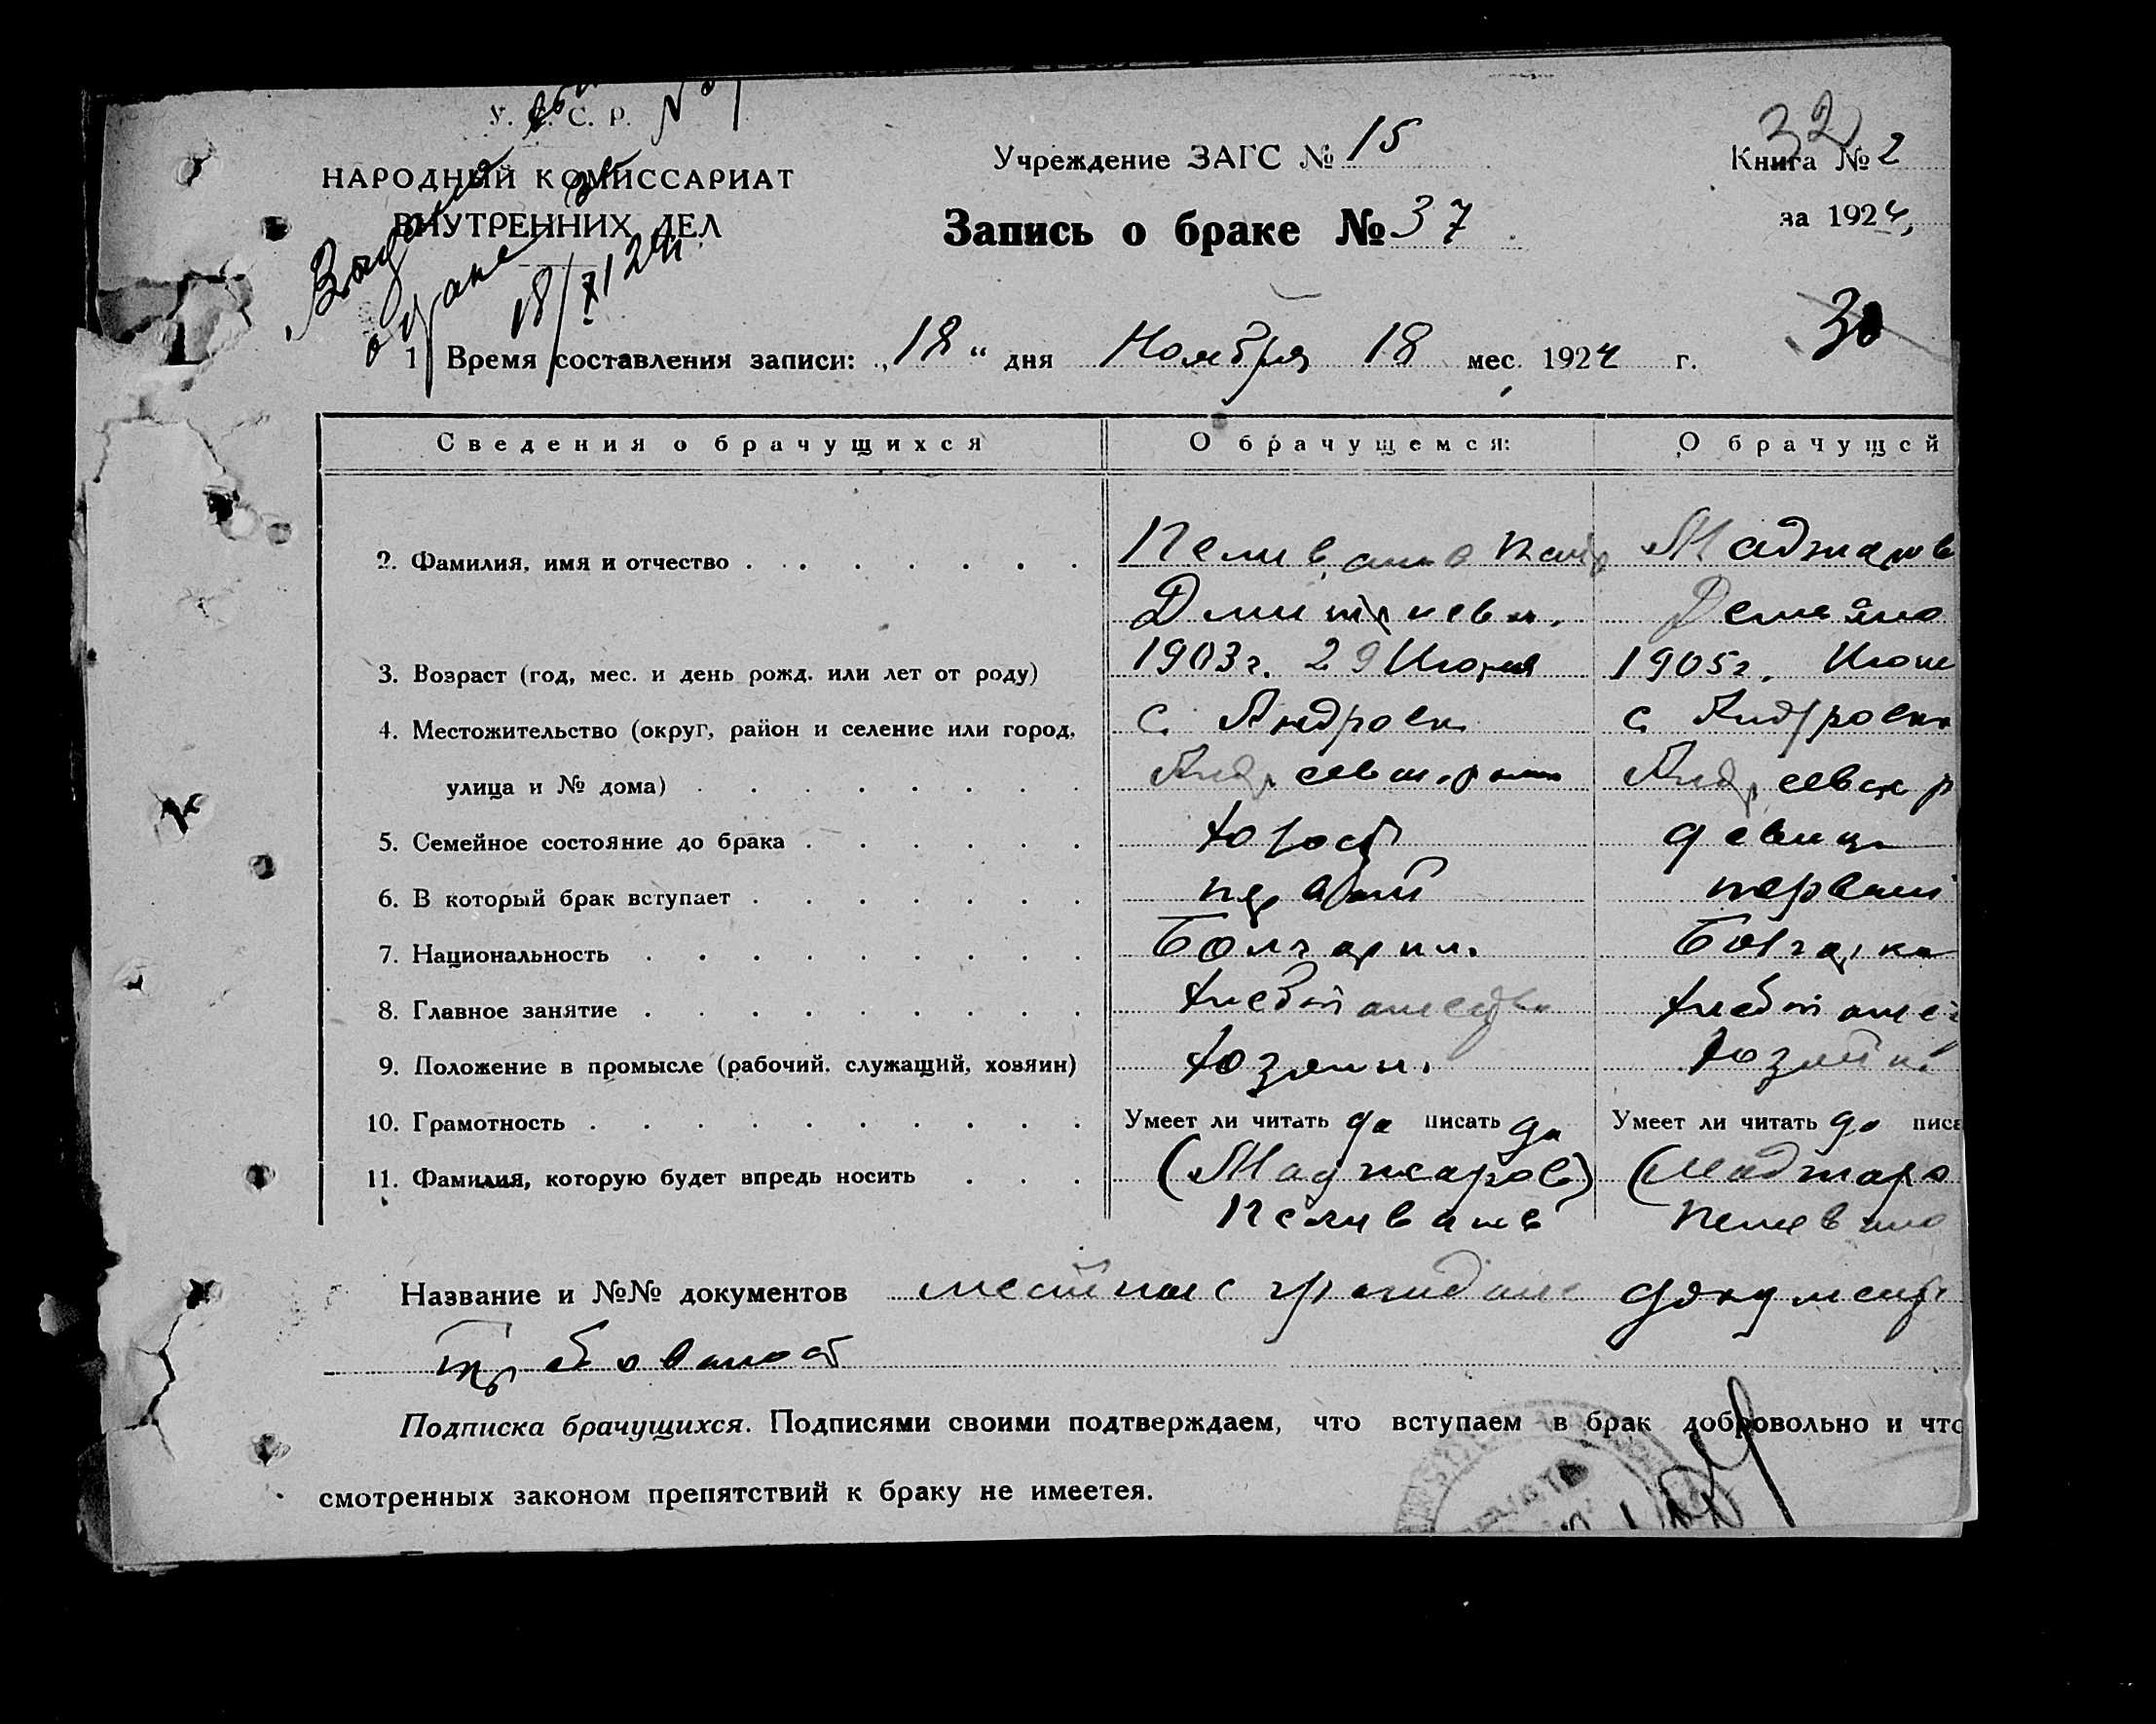 У. С. С. Р.
НАРОДНЫЙ КОМИССАРИАТ
ВНУТРЕННИХ ДЕЛ
18/XI 24
Учреждение ЗАГС № 15
Запись о браке № 37
32
Книга № 2
за 1924
30
1 Время составления записи: „18“ дня Ноября 18 мес. 1924 г.
Сведения о брачущихся О брачущемся: О брачущей
2. Фамилия, имя и отчество Пеливанов Маджаров
Дмитриев.
3. Возраст (год, мес. и день рожд. или лет от роду) 1903г. 29 Июня 1905г. Июн
4. Местожительство (округ, район и селение или город, с. Андровк с. Андровк
улица и № дома) Андреевск. Андреевск р
5. Семейное состояние до брака холост девица
6. В который брак вступает первый первый
7. Национальность Болгарин. Болгарка
8. Главное занятие хлебопашество хлебопаше
9. Положение в промысле (рабочий, служащий, хозяин) хозяин. хозяйк.
10. Грамотность Умеет ли читать да писать да Умеет ли читать да писа
11. Фамилия, которую будет впредь носить (Маджаров) (Маджаро
Пеливанов Пеливано
Название и №№ документов местные граждане документ
требовалось
Подписка брачущихся. Подписями своими подтверждаем, что вступаем в брак добровольно и что
смотренных законом препятствий к браку не имеетея.